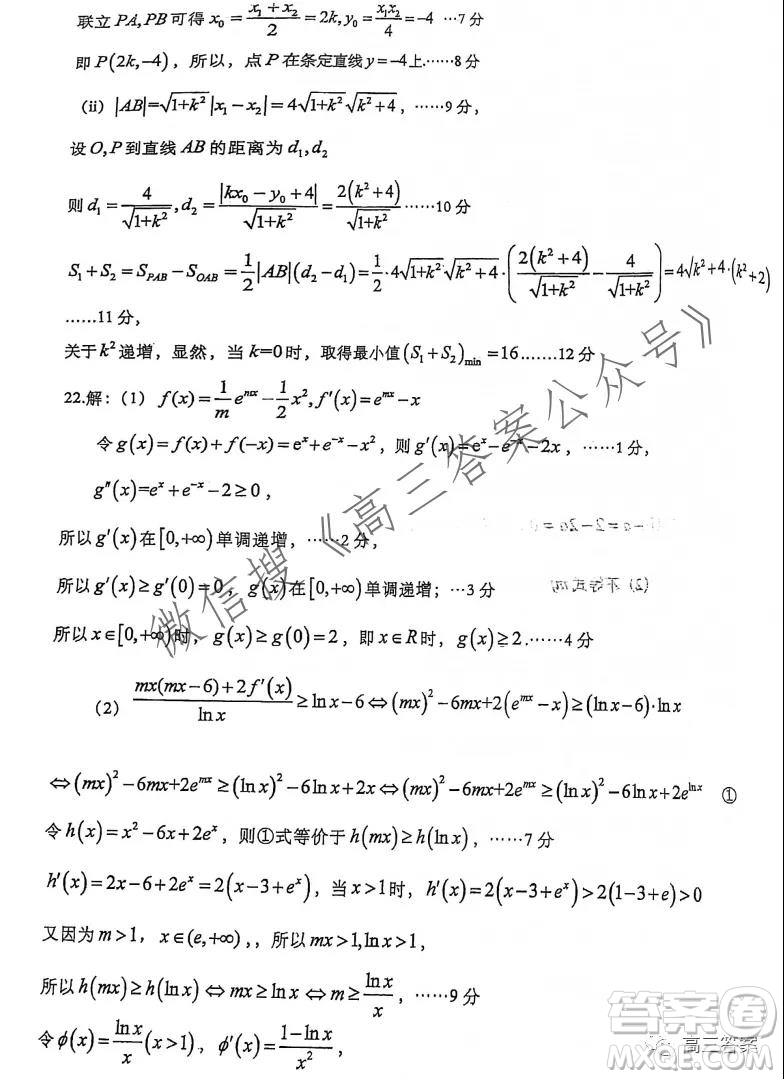 联立PA,PB可得x₀=(x₁+x₂)/2=2k,y₀=x₁x₂/4=-4 …7分
即P(2k,-4)，所以，点P在条定直线y=-4上.……8分
(ii) |AB|=√(1+k²)|x₁-x₂|=4√(1+k²)√(k²+4)，……9分，
设O,P到直线AB的距离为d₁,d₂
则d₁=4/√(1+k²),d₂=|kx₀-y₀+4|/√(1+k²)=2(k²+4)/√(1+k²)……10分
S₁+S₂=S_PAB-S_OAB=1/2|AB|(d₂-d₁)=1/2·4√(1+k²)√(k²+4)·(2(k²+4)/√(1+k²)-4/√(1+k²))=4√(k²+4)·(k²+2)
……11分，
关于k²递增，显然，当k=0时，取得最小值(S₁+S₂)min=16.……12分
22.解：(1) f(x)=1/m e^(mx)-1/2 x²,f′(x)=e^(mx)-x
令g(x)=f(x)+f(-x)=e^x+e^(-x)-x²，则g′(x)=e^x-e^(-x)-2x，……1分，
g″(x)=e^x+e^(-x)-2≥0，
所以g′(x)在[0,+∞)单调递增，……2分，
所以g′(x)≥g′(0)=0，g(x)在[0,+∞)单调递增；…3分
所以x∈[0,+∞)时，g(x)≥g(0)=2，即x∈R时，g(x)≥2.……4分
(2) (mx(mx-6)+2f′(x))/ln x≥ln x-6⇔(mx)²-6mx+2(e^(mx)-x)≥(ln x-6)·ln x
⇔(mx)²-6mx+2e^(mx)≥(ln x)²-6ln x+2x⇔(mx)²-6mx+2e^(mx)≥(ln x)²-6ln x+2e^(ln x) ①
令h(x)=x²-6x+2e^x，则①式等价于h(mx)≥h(ln x)，……7分
h′(x)=2x-6+2e^x=2(x-3+e^x)，当x>1时，h′(x)=2(x-3+e^x)>2(1-3+e)>0
又因为m>1，x∈(e,+∞),，所以mx>1,ln x>1，
所以h(mx)≥h(ln x)⇔mx≥ln x⇔m≥ln x/x，……9分
令ϕ(x)=ln x/x(x>1)，ϕ′(x)=(1-ln x)/x²，
微信搜《高三答案公众号》
答案卷
高三答案
MXQE.COM